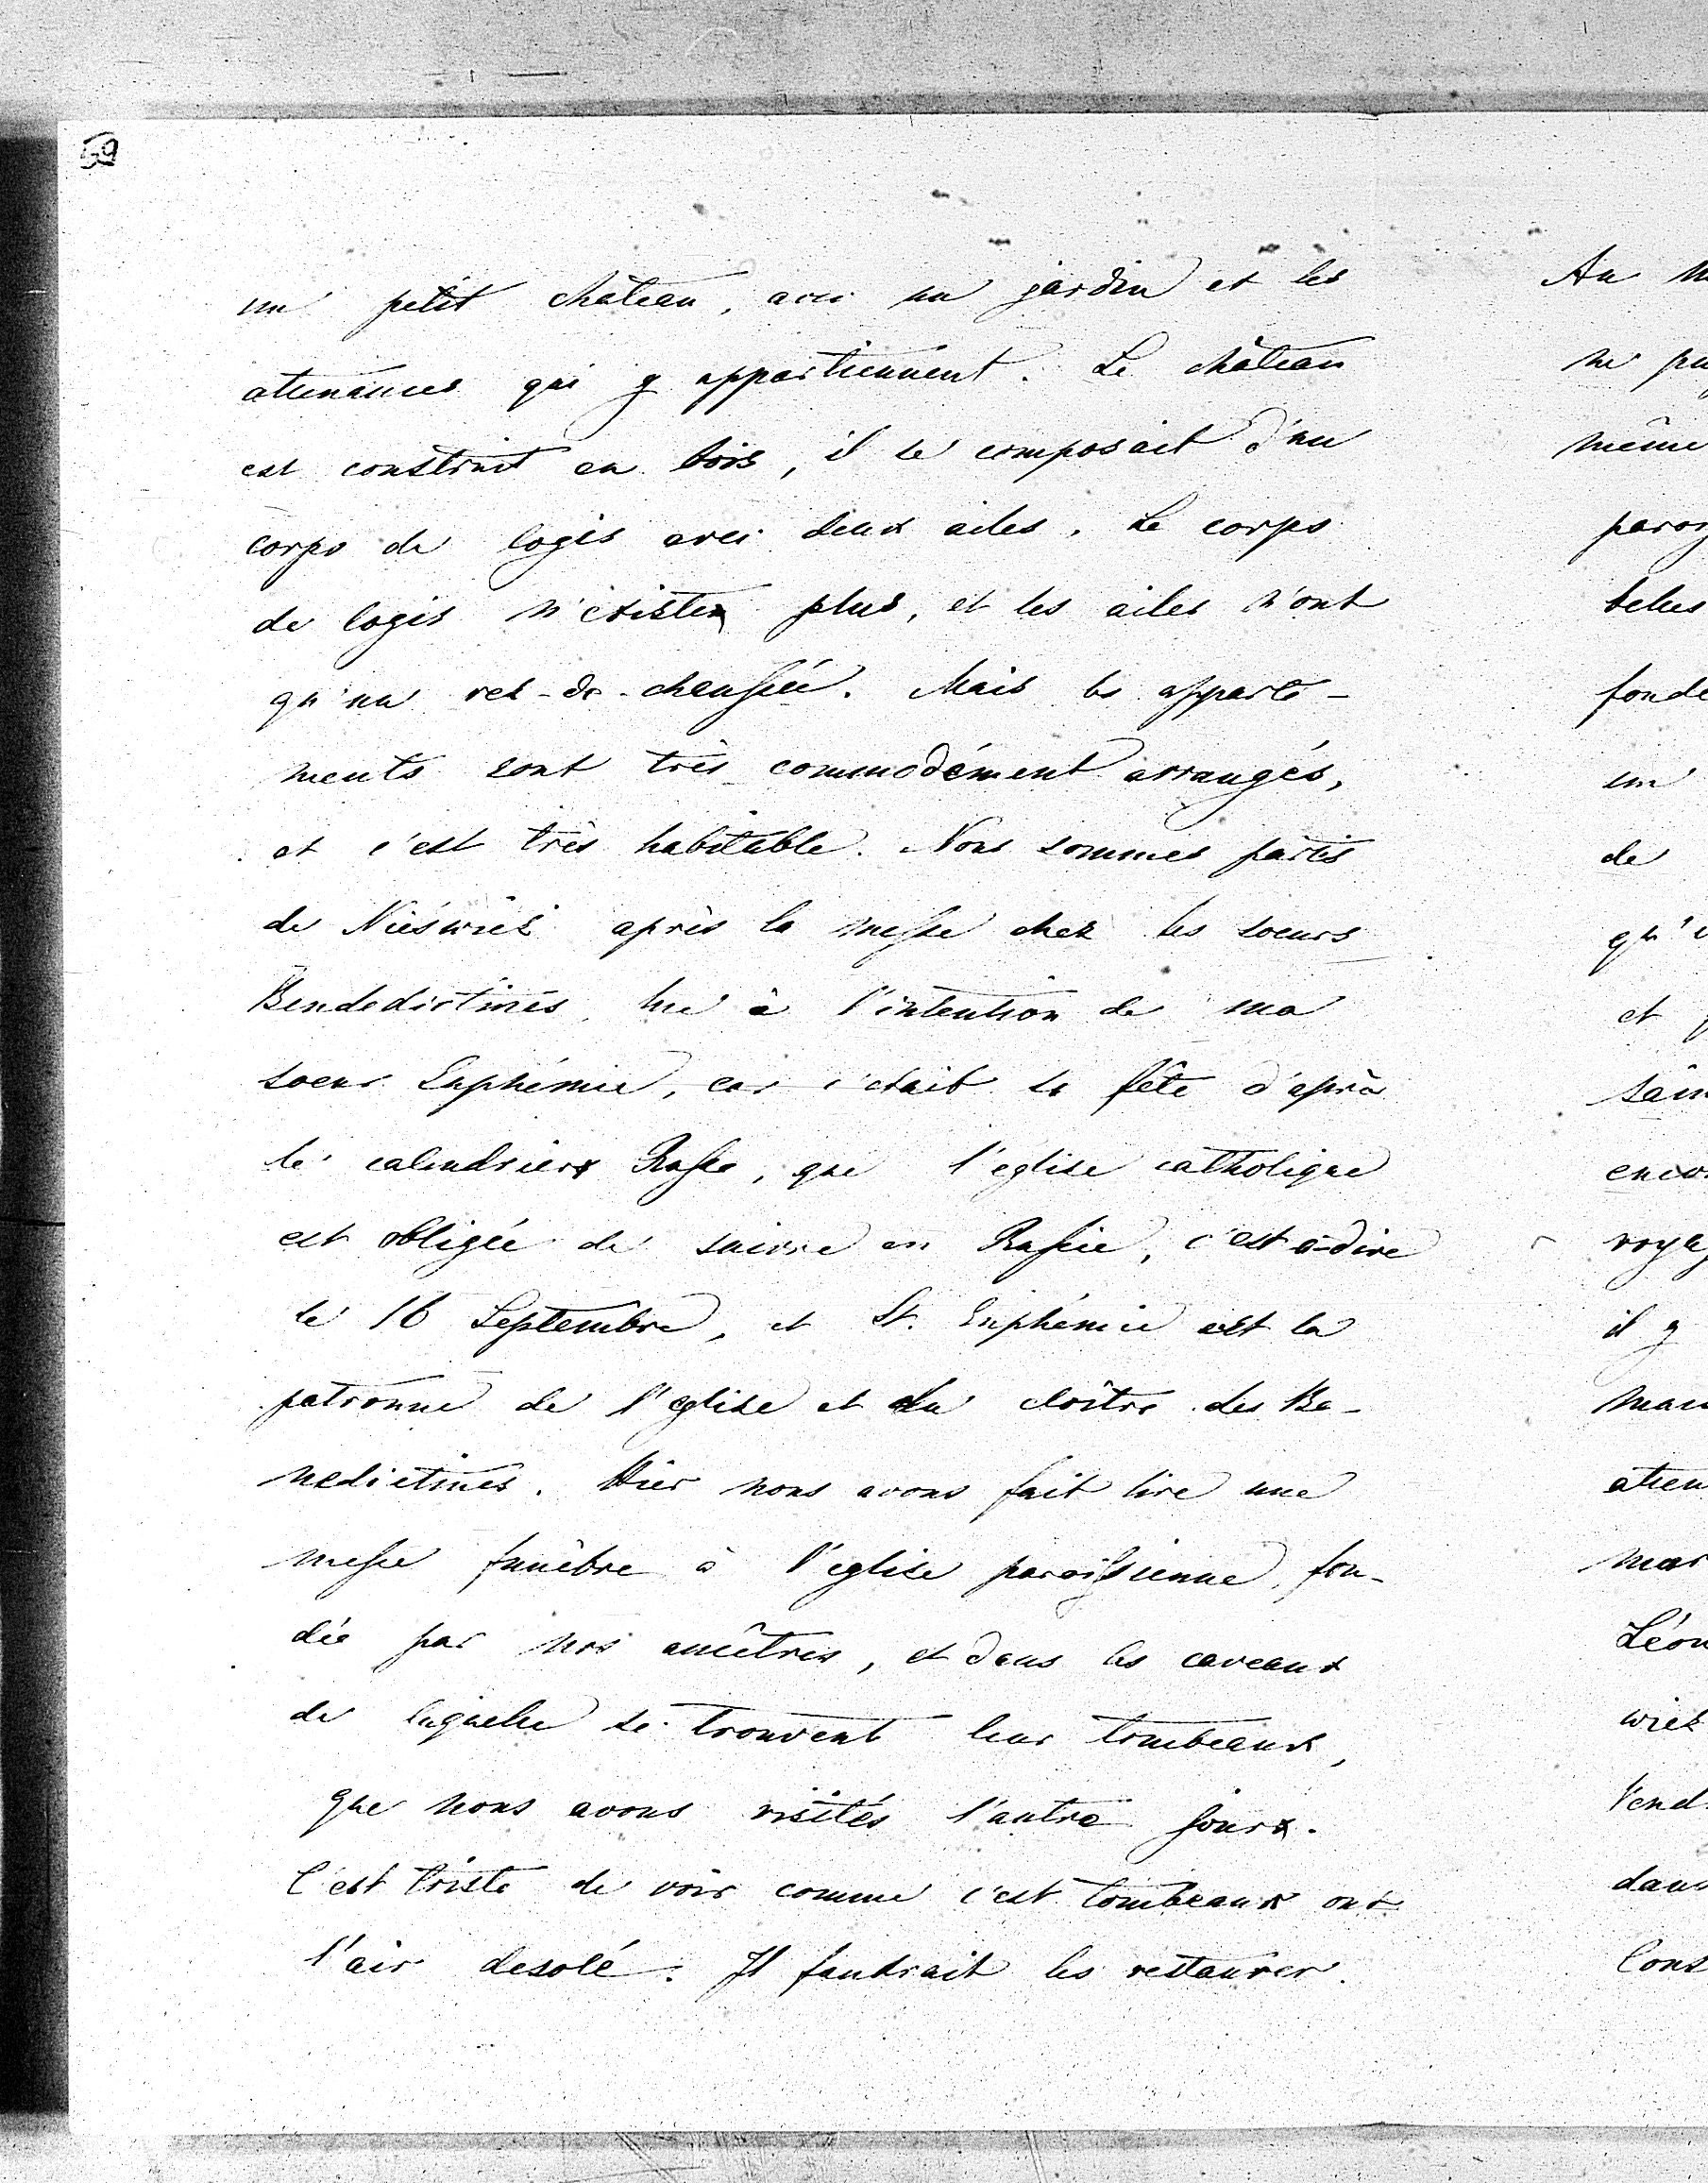 59
un petit château, avec un jardin et les
attenances qui y appartiennent. Le château
est construit en bois, il se composait d'un
corps de logis avec deux ailes. Le corps
de logis n'existe plus, et les ailes n'ont
qu'un rez-de-chaussée. Mais les apparte-
ments sont très commodément arrangés,
et c'est très habitable. Nous sommes partis
de Nieświeź après la messe chez les soeurs
Bendedictines, lue à l'intention de ma
soeur Euphémie, car c'était sa fête d'après
le calendrier Russe, que l'eglise catholique
est obligée de suivre en Russie, c'est à-dire
le 16 Septembre, et St. Euphémie est la
patronne de l'eglise et du cloître des Be-
nedictines. Hier nous avons fait lire une
messe funèbre à l'eglise paroissienne, fon-
dée par nos ancêtres, et dans les caveaux
de laquelle se trouvent leur tombeaux,
que nous avons visités l'autre jour.
C'est triste de voir comme c'est tombeaux ont
l'air desolé. Il faudrait les restaurer.
Au
ne
même
fonde
un
de
qu'
et
il y
Léon
wiez
dans